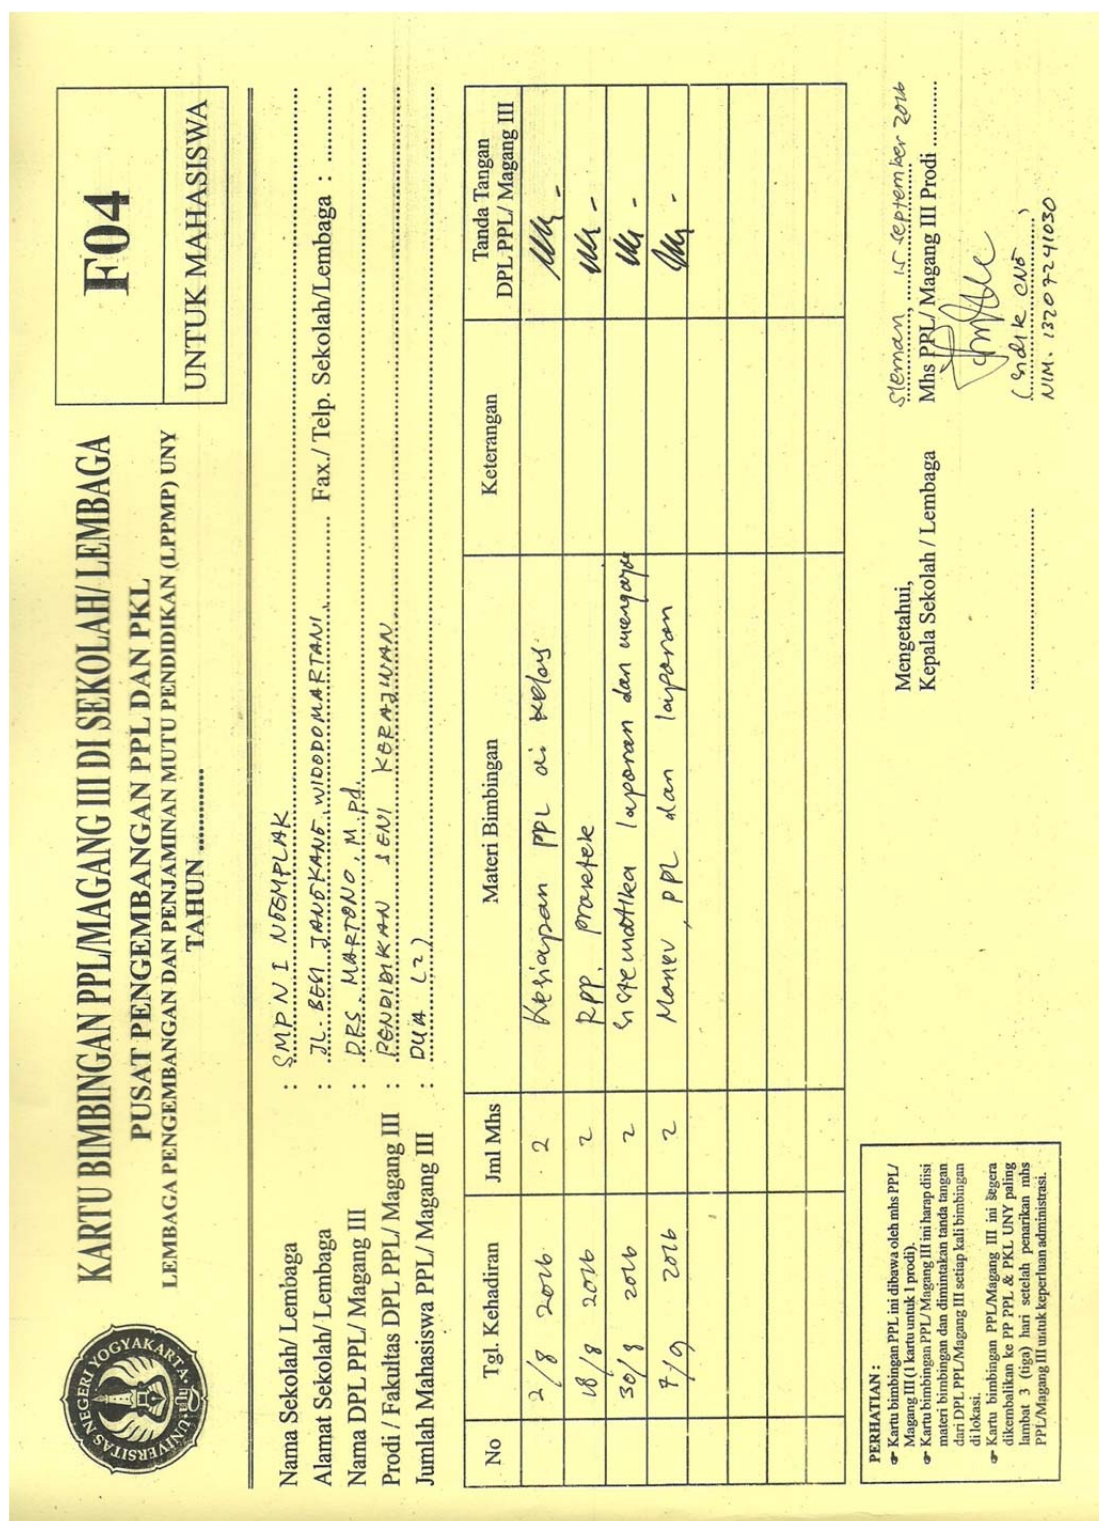 UNIVERSITAS NEGERI YOGYAKARTA
KARTU BIMBINGAN PPL/MAGANG III DI SEKOLAH/ LEMBAGA
PUSAT PENGEMBANGAN PPL DAN PKL
LEMBAGA PENGEMBANGAN DAN PENJAMINAN MUTU PENDIDIKAN (LPPMP) UNY
TAHUN .............
F04
UNTUK MAHASISWA
Nama Sekolah/ Lembaga : SMP N 1 NGEMPLAK
Alamat Sekolah/ Lembaga : JL. BESI JANGKANG WIDODOMARTANI Fax./ Telp. Sekolah/Lembaga : ............
Nama DPL PPL/ Magang III : DRS. MARTONO. M.Pd.
Prodi / Fakultas DPL PPL/ Magang III : PENDIDIKAN SENI KERAJINAN
Jumlah Mahasiswa PPL/ Magang III : DUA (2)
No Tgl. Kehadiran Jml Mhs Materi Bimbingan Keterangan Tanda Tangan DPL PPL/ Magang III
2/8 2016 2 Kesiapan PPL di kelas
18/8 2016 2 RPP. praktek
30/8 2016 2 Sistematika laporan dan
7/9 2016 2 Monev PPL dan laporan
PERHATIAN :
☞ Kartu bimbingan PPL ini dibawa oleh mhs PPL/
Magang III (1 kartu untuk 1 prodi).
☞ Kartu bimbingan PPL/ Magang III ini harap diisi
materi bimbingan dan dimintakan tanda tangan
dari DPL PPL/Magang III setiap kali bimbingan
di lokasi.
☞ Kartu bimbingan PPL/Magang III ini segera
dikembalikan ke PP PPL & PKL UNY paling
lambat 3 (tiga) hari setelah penarikan mhs
PPL/Magang III untuk keperluan administrasi.
Mengetahui,
Kepala Sekolah / Lembaga
Sleman, 15 September 2016
Mhs PPL/ Magang III Prodi ............
NIM. 13207241030